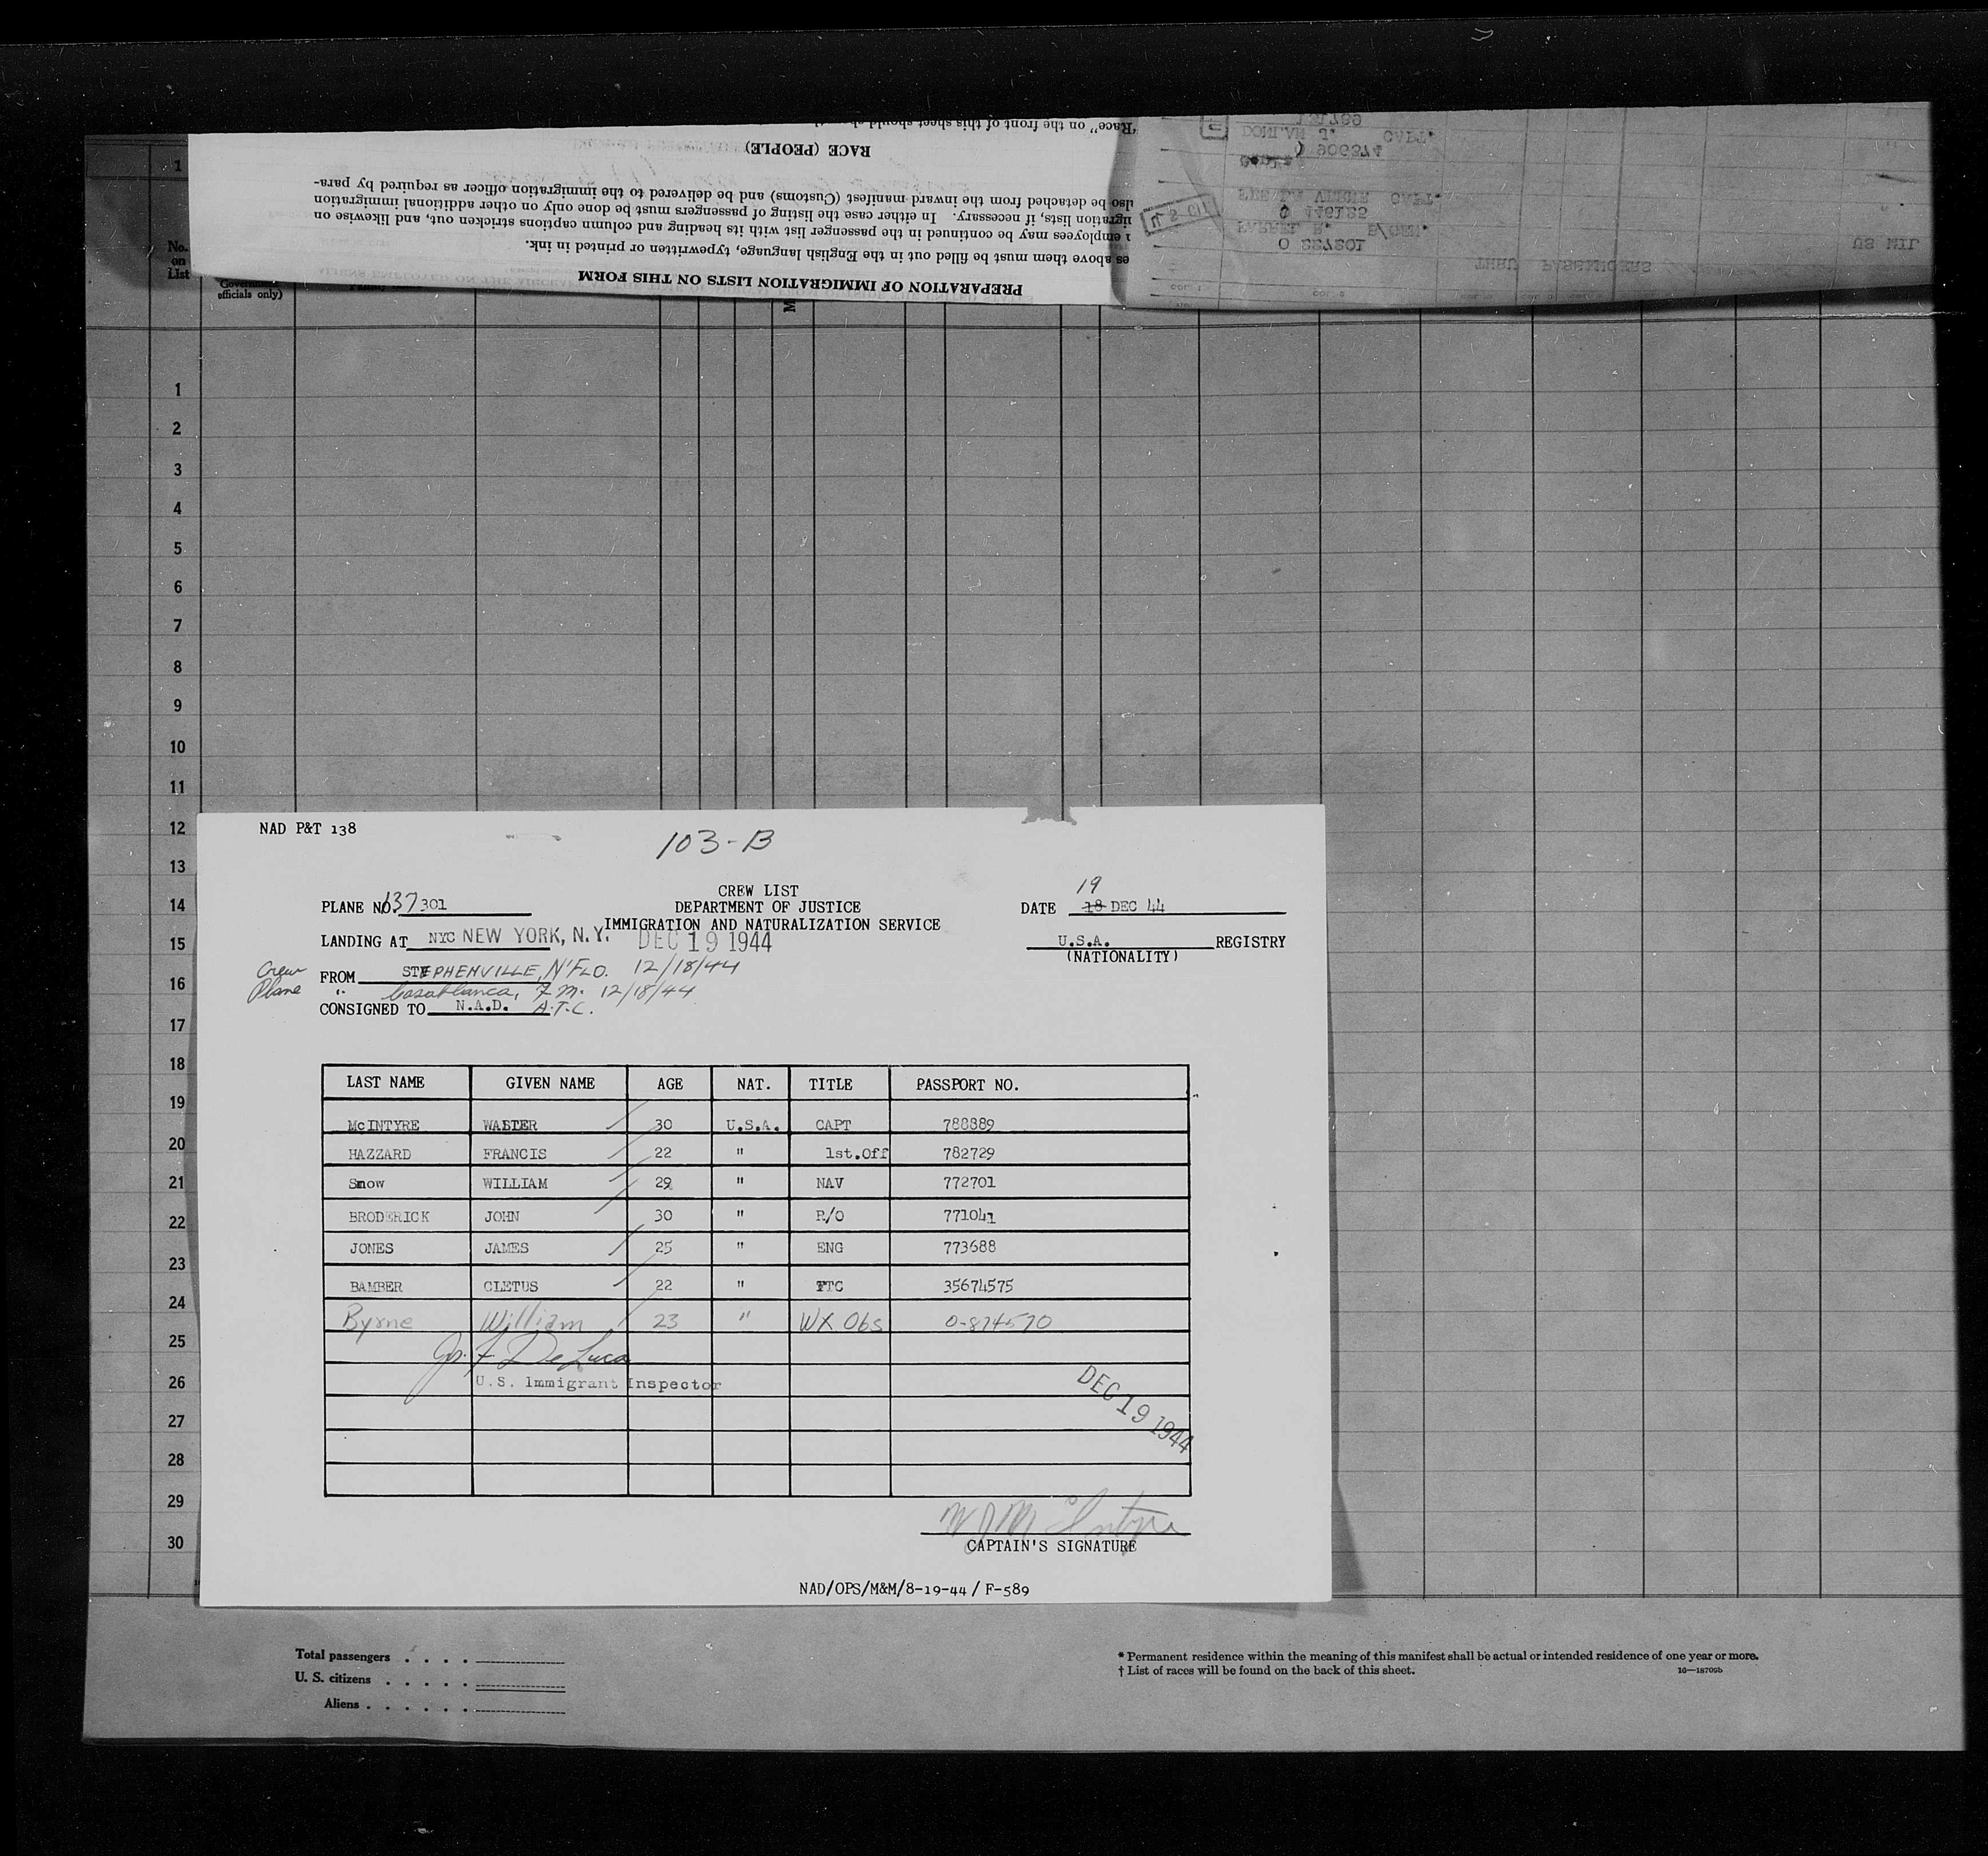 "Race" on the front of this sheet should
RACE (PEOPLE)
also be detached from the inward manifest (Customs) and be delivered to the immigration officer as required by para-
lists, if necessary. In either case the listing of passengers must be done only on other additional immigration
employees may be continued in the passenger list with its heading and column captions stricken out, and likewise on
above them must be filled out in the English language, typewritten or printed in ink.
PREPARATION OF IMMIGRATION LISTS ON THIS FORM
CAPT.
906374
CAPT.
O 446185
B/GEN.
O 337301
THRU PASSENGERS
US MIL
1
No. on List
officials only)
1
2
3
4
5
6
7
8
9
10
11
12
13
14
15
16
17
18
19
20
21
22
23
24
25
26
27
28
29
30
NAD P&T 138
103-B
CREW LIST
DEPARTMENT OF JUSTICE
IMMIGRATION AND NATURALIZATION SERVICE
PLANE NO. 137301
DATE 18 19 DEC 44
LANDING AT NYC NEW YORK, N.Y. DEC 19 1944
U.S.A. REGISTRY
(NATIONALITY)
Crew FROM STEPHENVILLE, N'FLD. 12/18/44
Plane " Casablanca, F.M. 12/18/44
CONSIGNED TO N.A.D. A.T.C.
LAST NAME GIVEN NAME AGE NAT. TITLE PASSPORT NO.
McINTYRE WALTER 30 U.S.A. CAPT 788889
HAZZARD FRANCIS 22 " 1st.Off 782729
Snow WILLIAM 29 " NAV 772701
BRODERICK JOHN 30 " R/O 771041
JONES JAMES 25 " ENG 773688
BAMBER CLETUS 22 " TTC 35674575
Byrne William 23 " WX Obs O-874570
Jos. F. DeLuca
U.S. Immigrant Inspector
DEC 19 1944
W J McIntyre
CAPTAIN'S SIGNATURE
NAD/OPS/M&M/8-19-44 / F-589
Total passengers . . . .
U. S. citizens . . . . .
Aliens . . . . . .
* Permanent residence within the meaning of this manifest shall be actual or intended residence of one year or more.
† List of races will be found on the back of this sheet.
16—18709b